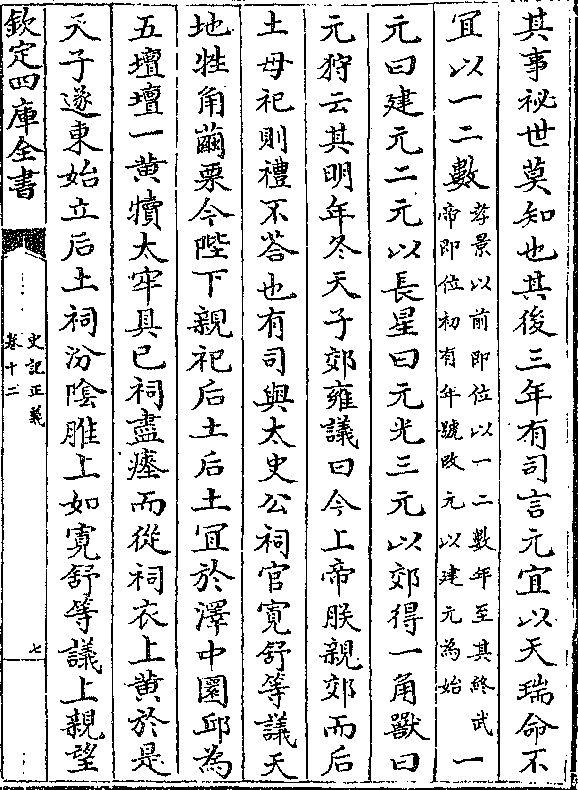 其事祕世莫知也其後三年有司言元宜以天瑞命不
宜以一二數孝景以前即位以一二數年至其終武帝即位初有年號改元以建元為始一
元曰建元二元以長星曰元光三元以郊得一角獸曰
元狩云其明年冬天子郊雍議曰今上帝朕親郊而后
土母祀則禮不答也有司與太史公祠官寛舒等議天
地牲角繭栗今陛下親祀后土后土宜於澤中圜邱為
五壇壇一黄犢太牢具已祠盡瘞而從祠衣上黄於是
天子遂東始立后土祠汾陰脽上如寛舒等議上親望
欽定四庫全書
史記正義
卷十二
七